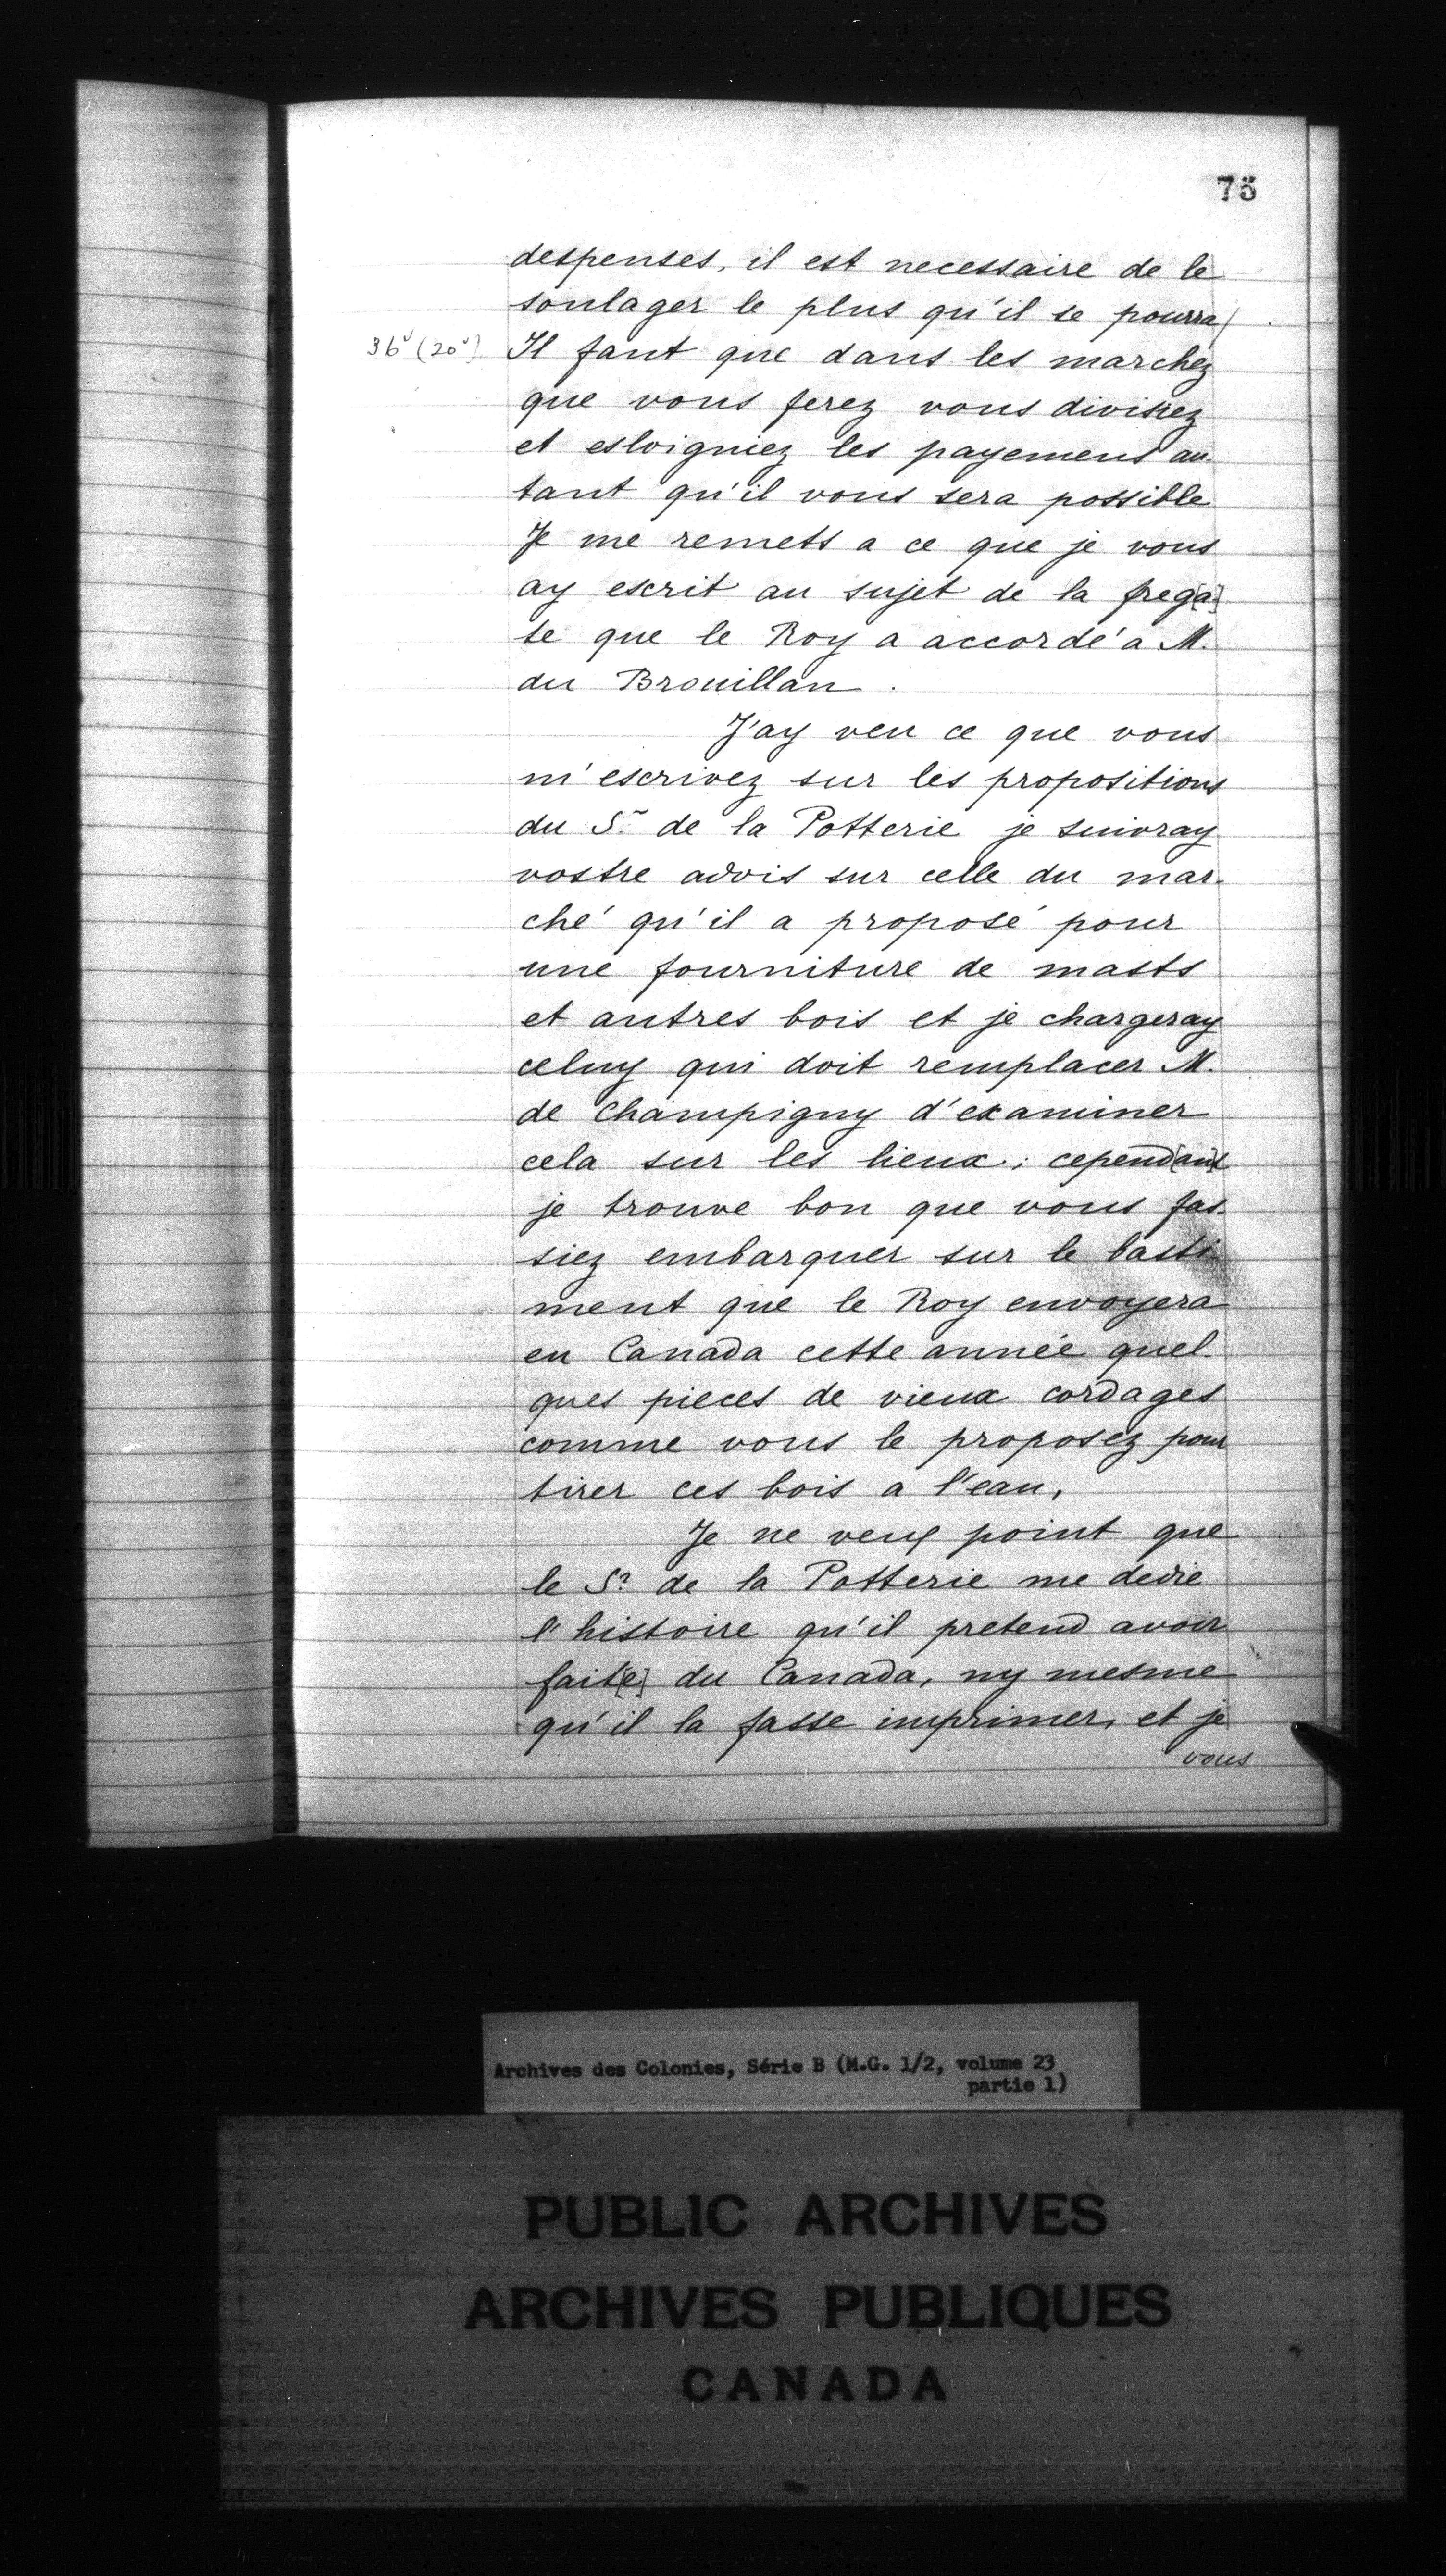 75
despenses, il est necessaire de le
soulager le plus qu'il se pourra/
36v (20v) Il faut que dans les marchez
que vous ferez vous divisiez
et esloigniez les payemens au-
tant qu'il vous sera possible
Je me remets a ce que je vous
ay escrit au sujet de la freg[a]
te que le Roy a accordé a M.
du Brouillan.
J'ay veu ce que vous
m'escrivez sur les propositions
du Sr de la Potterie je suivray
vostre advis sur celle du mar-
ché qu'il a proposé pour
une fourniture de masts
et autres bois et je chargeray
celuy qui doit remplacer M.
de Champigny d'examiner
cela sur les lieux; cepend[ant]
je trouve bon que vous fas-
siez embarquer sur le basti
ment que le Roy envoyera
en Canada cette année quel-
ques pieces de vieux cordages
comme vous le proposez pour
tirer ces bois a l'eau,
Je ne veux point que
le Sr de la Potterie me dedie
l'histoire qu'il pretend avoir
fait[e] du Canada, ny mesme
qu'il la fasse imprimer, et je
vous
Archives des Colonies, Série B (M.G. 1/2, volume 23
partie 1)
PUBLIC ARCHIVES
ARCHIVES PUBLIQUES
CANADA